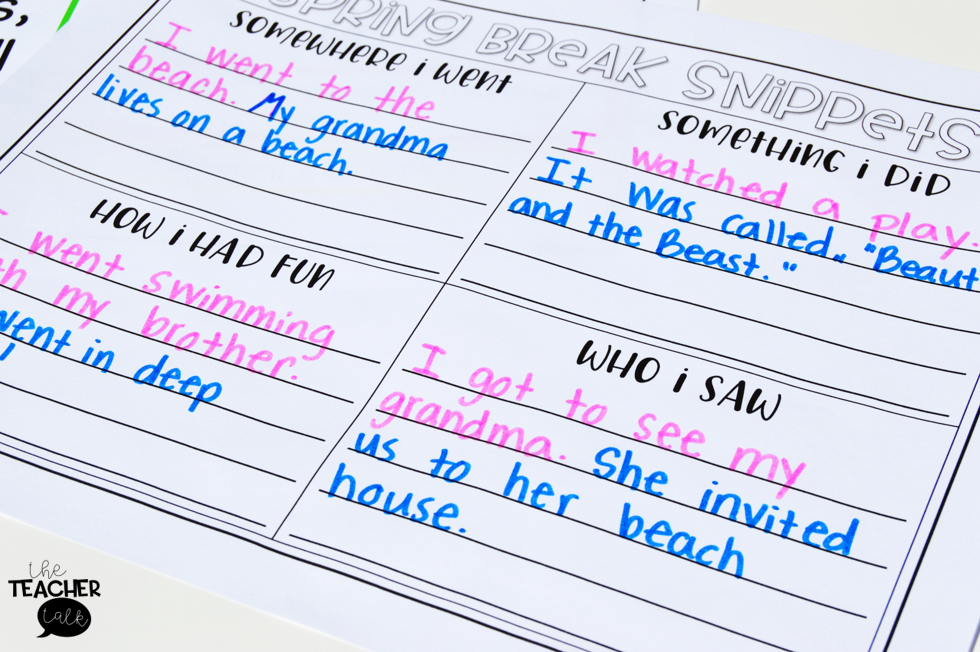 SPRING BREAK SNIPPETS
SOMEWHERE i WENT
I went to the
beach. My grandma
lives on a beach.
SOMETHING i DiD
I watched a play.
It was called, "Beaut
and the Beast."
HOW i HAD FUN
went swimming
my brother.
went in deep
WHO i SAW
I got to see my
grandma. She invited
us to her beach
house.
the
TEACHER
talk